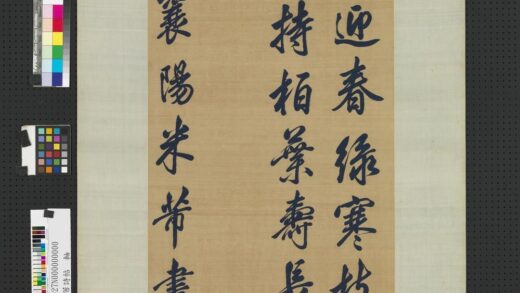 迎春綠寒枝
持柏葉壽長
襄陽米芾書
27N000000000